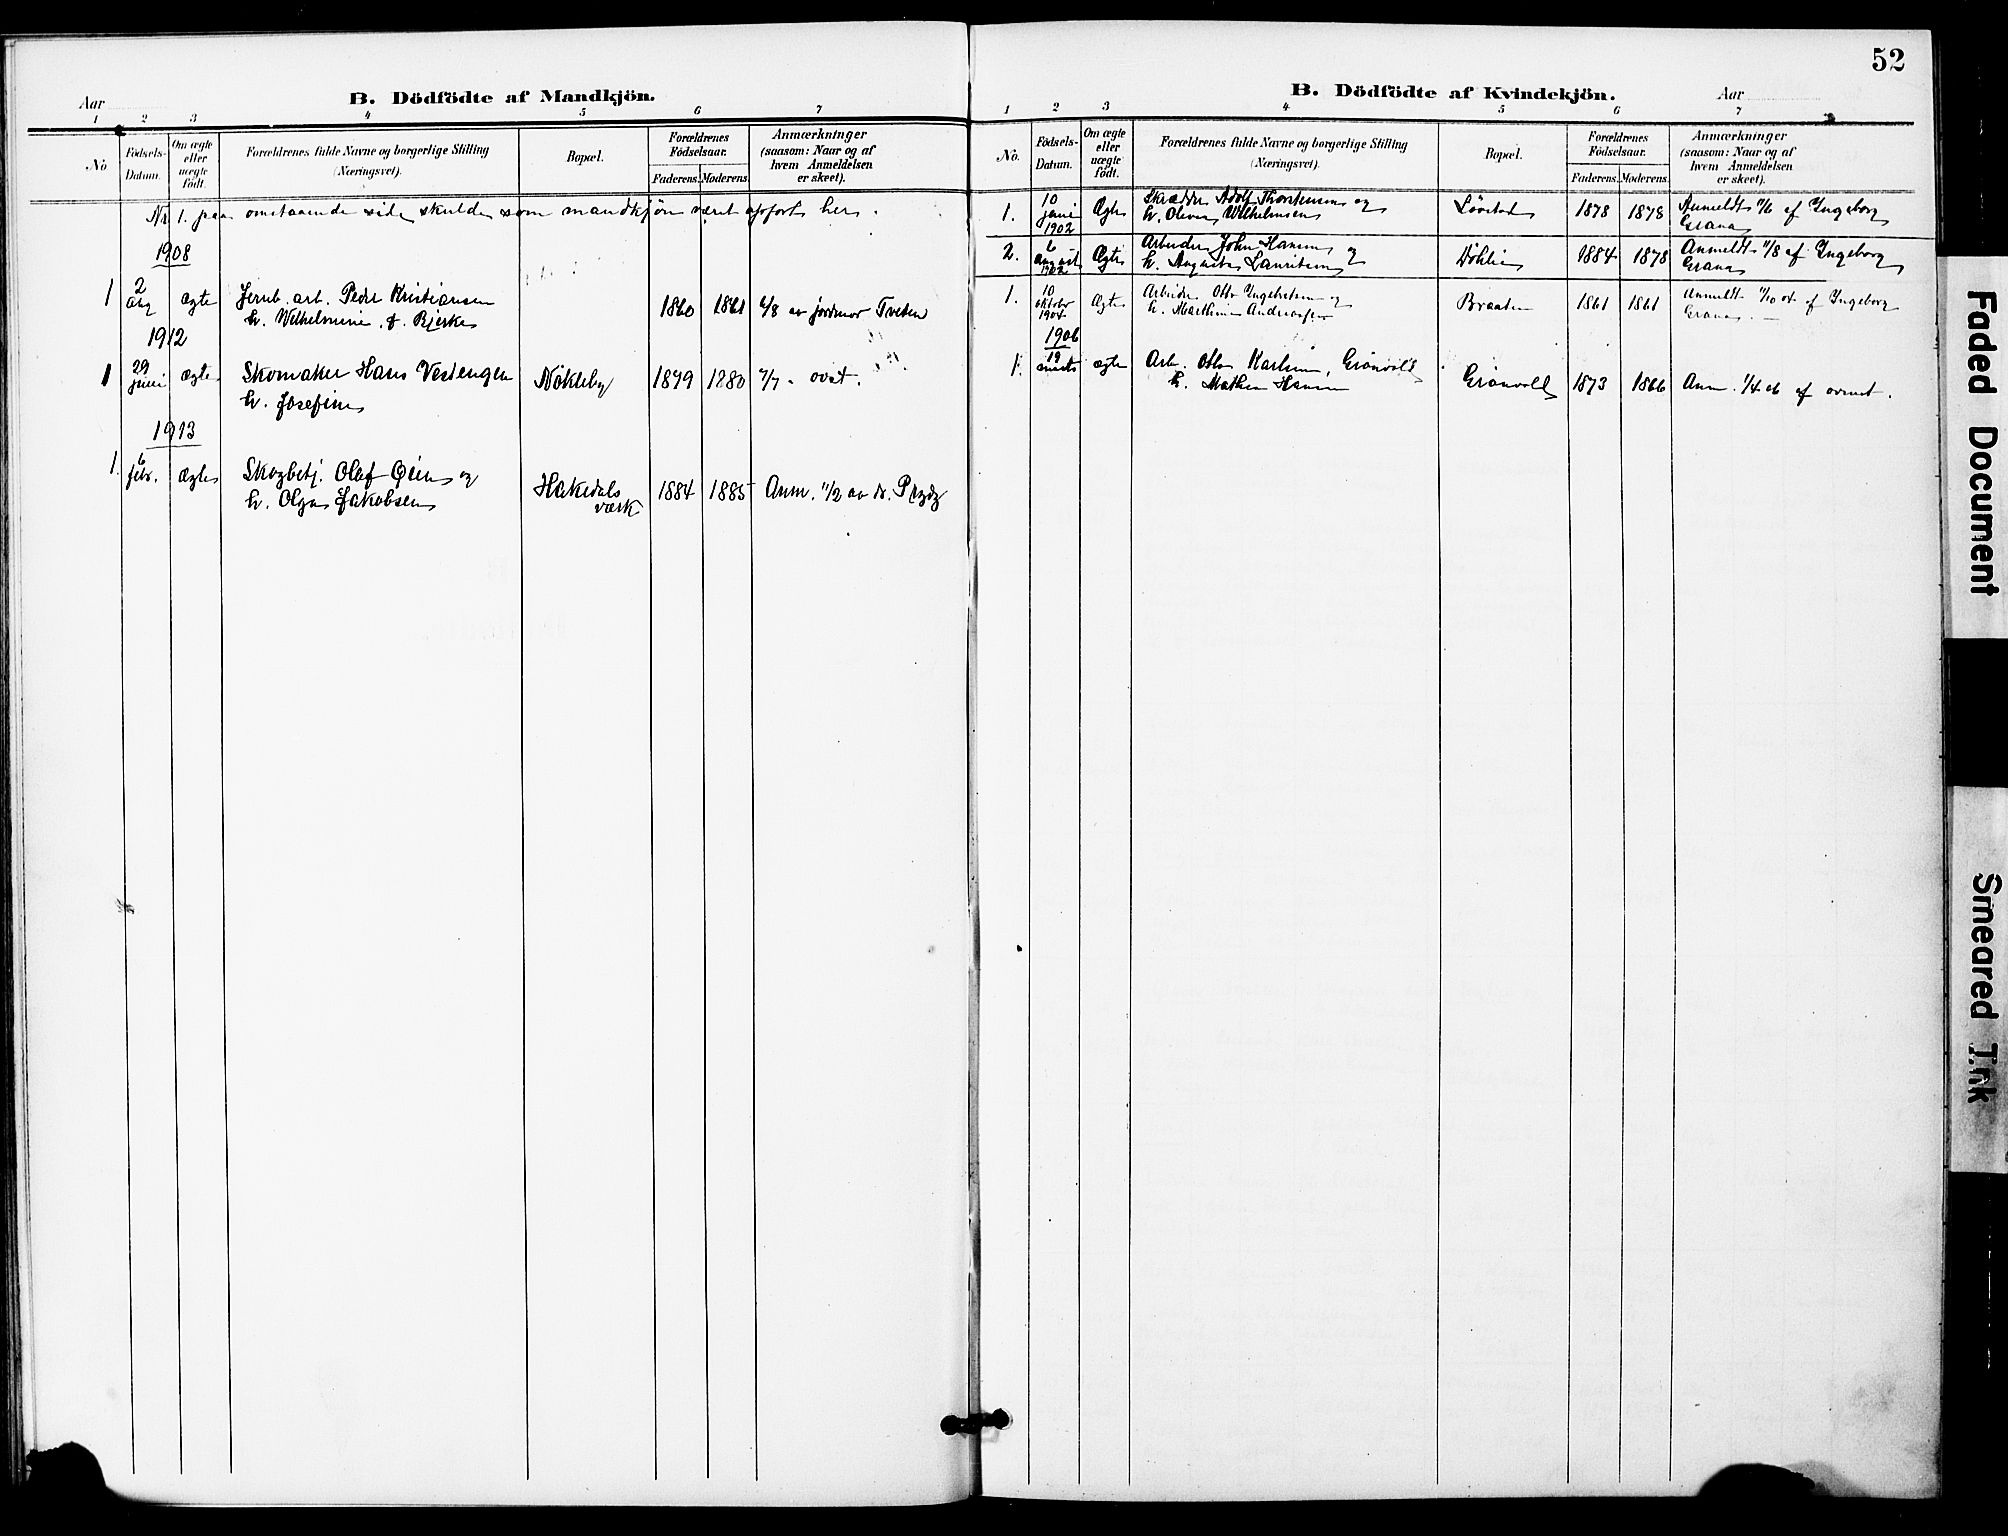 Aar
B. Dödfödte af Mandkjön.
1 2 3 4 5 6 7
No.
Födsels-
Datum.
Om ægte
eller
uægte
født.
Forældrenes fulde Navne og borgerlige Stilling
(Næringsvei).
Bopæl.
Forældrenes
Födselsaar.
Faderens. Moderens.
Anmærkninger
(saasom: Naar og af
hvem Anmeldelsen
er skeet).
Nr 1. paa omstaaende side skulde som mandkjøn været opført her.
1908
1 2 Aug ægte Jernb. arb. Peder Kristiansen
h. Vilhelmine . Bjerke 1860 1861 6/8 av jordmor Tveten
1912
1 29 juni ægte Skomaker Hans Vestengen
h. Josefine Nökleby 1879 1880 7/7 ovnt.
1913
1. 6 febr. ægte Skogbetj. Olaf Öien og
h. Olga Jakobsen Hakedals
værk 1884 1885 Anm. 11/2 av dr. Prydz
52
B. Dödfödte af Kvindekjön.
Aar
1 2 3 4 5 6 7
No.
Födsels-
Datum.
Om ægte
eller
uægte
födt.
Forældrenes fulde Navne og borgerlige Stilling
(Næringsvei).
Bopæl.
Forældrenes
Födselsaar.
Faderens. Moderens.
Anmærkninger
(saasom: Naar og af
hvem Anmeldelsen
er skeet).
1. 10 juni 1902 Ægte Skrædder Adolf Thorstensen og
h. Vilhelmsen 1878 1878 Anmeldt 11/6 af Ingeborg
Grana
2. 6 august 1902 Ægte Arbeider John Hansen og
h. Augusta Lauritsen Döhlie 1884 1878 Anmeldt 11/8 af Ingeborg
Grana
1. 10 oktober 1904 Ægte Arbeider Otto Ingebretsen og
h. Marthine Andreassen Braaten 1861 1861 Anmeldt 11/10 04 af Ingeborg
Grana
1906
1. 19 marts ægte Arb. Otto Karlsen, Grönvold
h. Mathea Hansen Grönvold 1873 1866 Anm. 1/4 06 af ovennt.
Faded Document
Smeared Ink